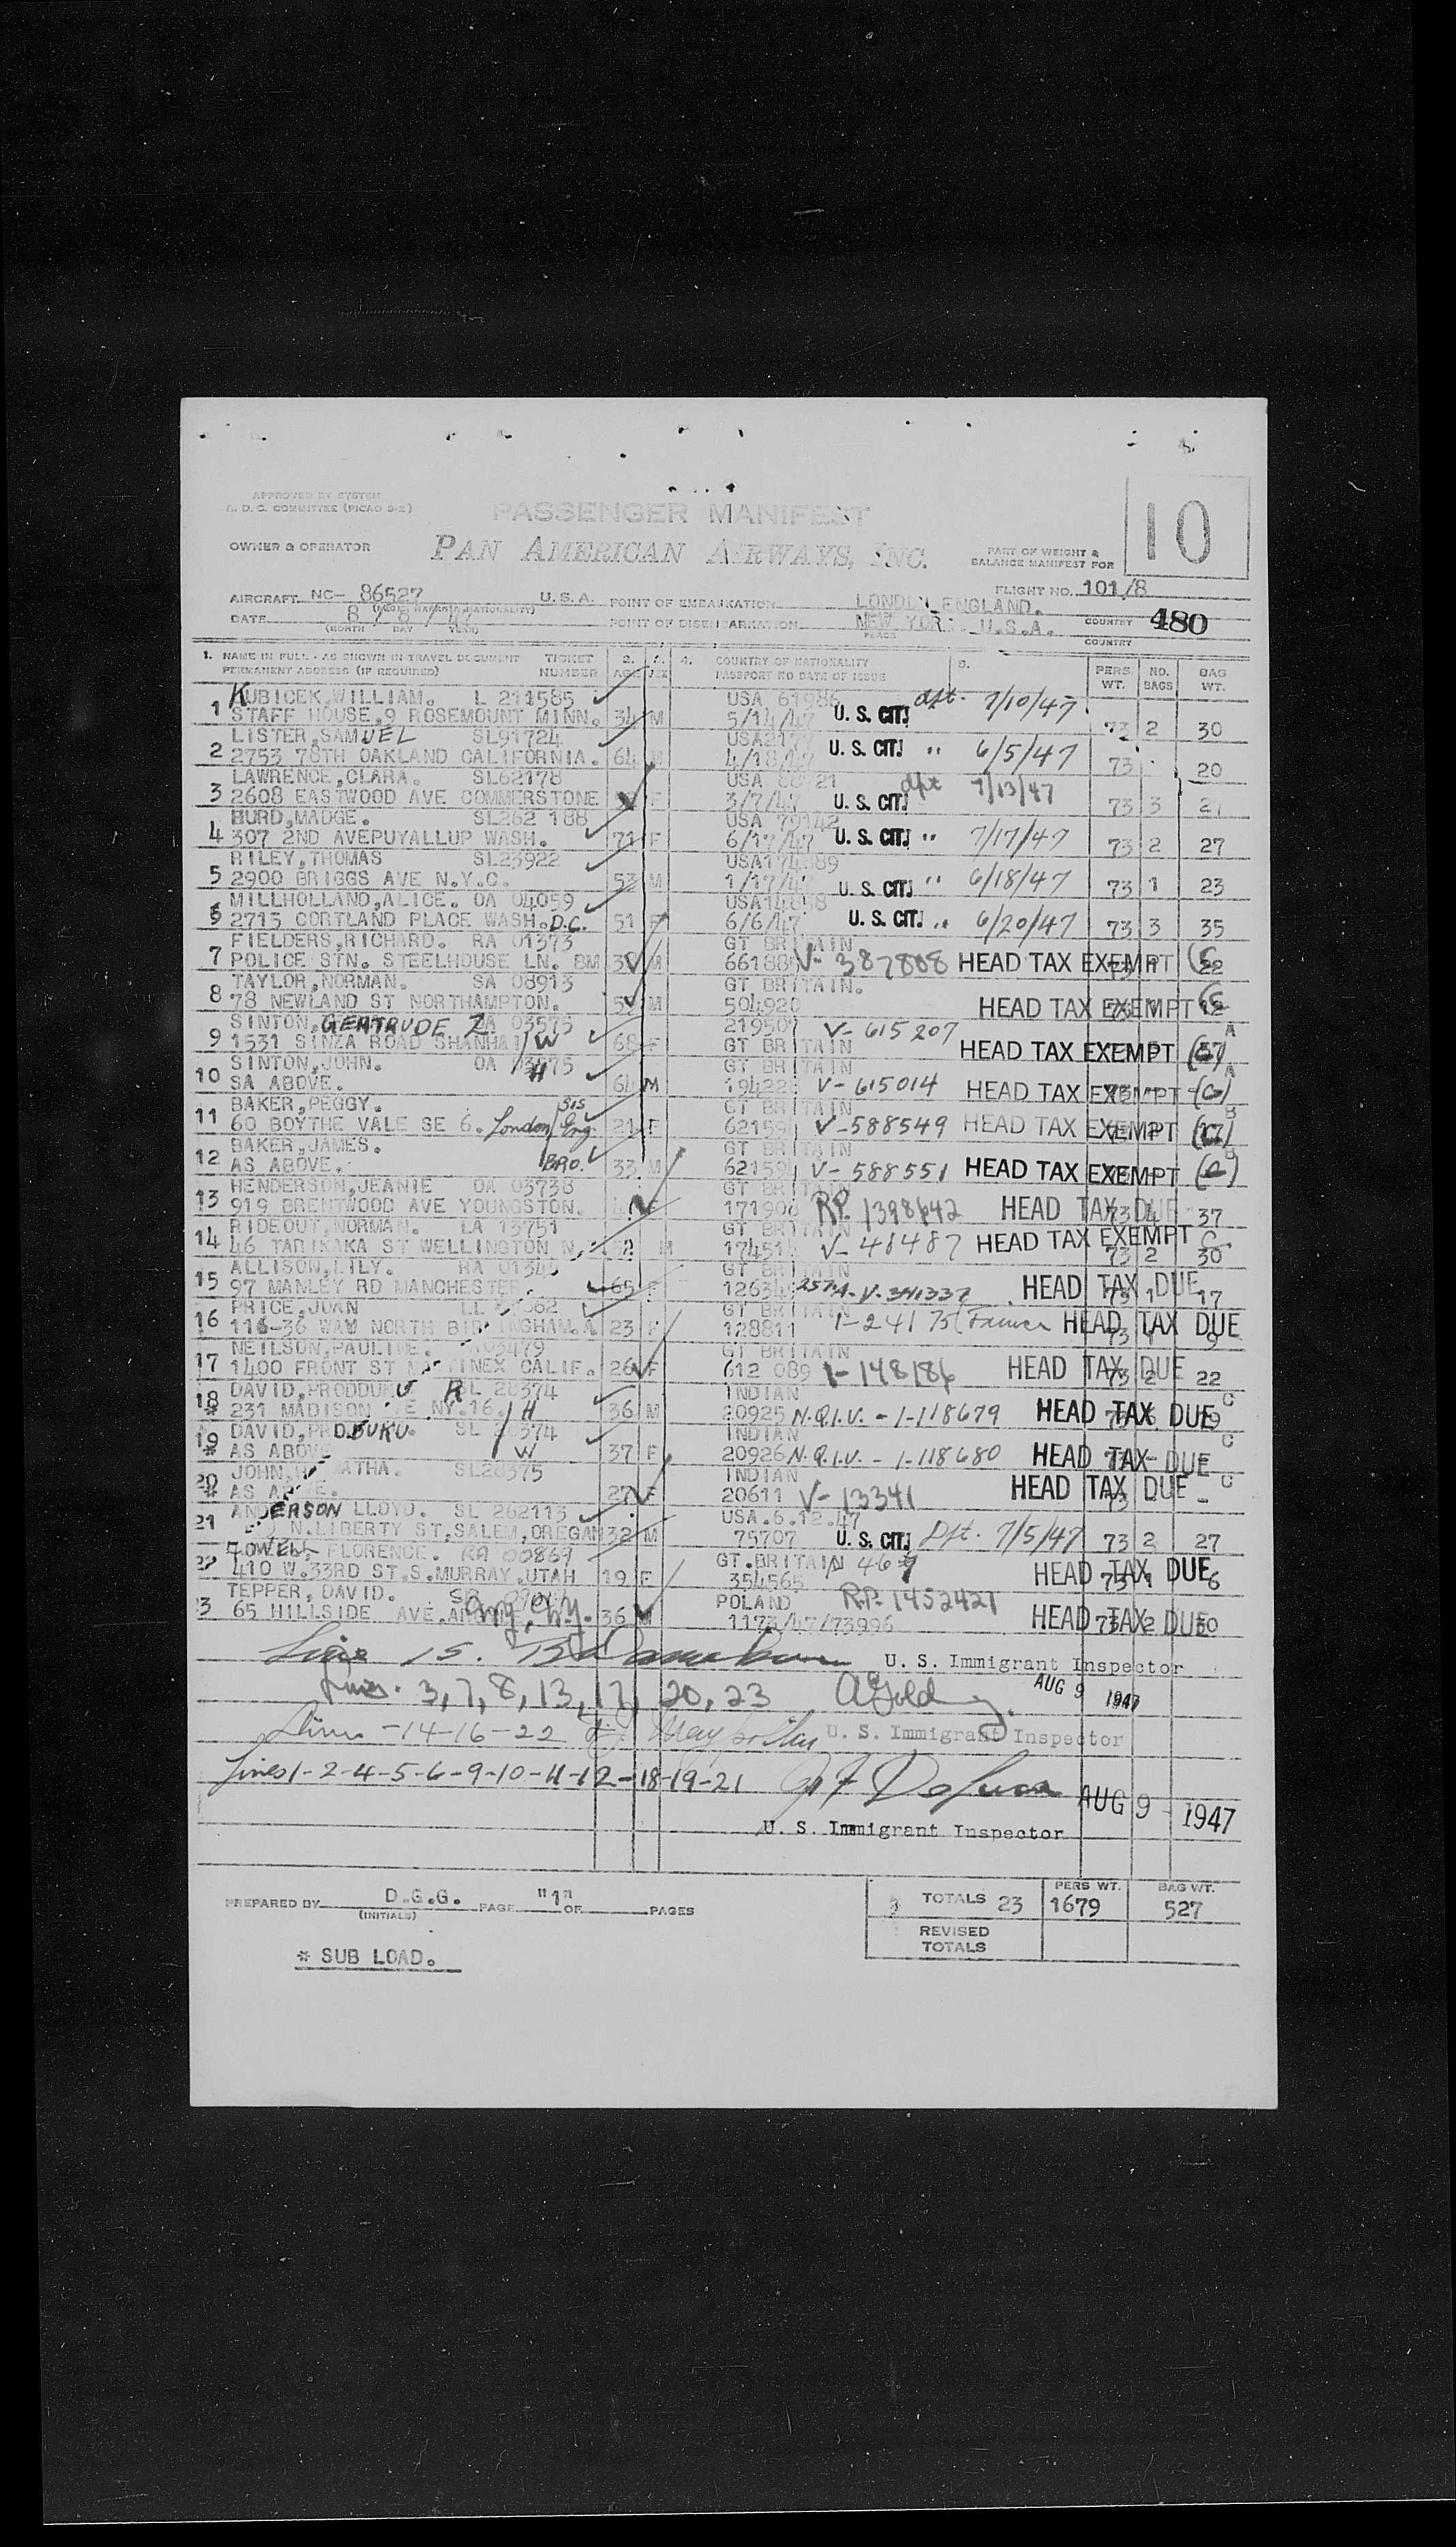 APPROVED BY SYSTEM
A. D. C. COMMITTEE (PICAO 9-2)
PASSENGER MANIFEST
10
OWNER & OPERATOR PAN AMERICAN AIRWAYS, INC. PART OF WEIGHT & BALANCE MANIFEST FOR
FLIGHT NO. 101/8
AIRCRAFT NC- 86527 U.S.A. POINT OF EMBARKATION LONDON ENGLAND. COUNTRY 480
DATE 8/8/47 POINT OF DISEMBARKATION NEW YORK U.S.A. COUNTRY
(MONTH DAY YEAR) PLACE
1. NAME IN FULL - AS SHOWN IN TRAVEL DOCUMENT TICKET 2. 3. 4. COUNTRY OF NATIONALITY 5. PERS. NO. BAG
PERMANENT ADDRESS (IF REQUIRED) NUMBER AGE SEX PASSPORT NO DATE OF ISSUE WT. BAGS WT.
KUBICEK, WILLIAM. L 211585 USA 61986 dpt. 7/10/47
1 STAFF HOUSE, 9 ROSEMOUNT MINN. 34 M 5/14/47 U. S. CIT. 73 2 30
LISTER, SAMUEL SL91724 USA
2 2753 78TH OAKLAND CALIFORNIA. 64 M U. S. CIT. " 6/5/47 73 20
LAWRENCE, CLARA. SL62178 USA dpt 7/13/47
3 2608 EASTWOOD AVE COMMERSTONE F 3/7/47 U. S. CIT. 73 3 27
BURD, MADGE. SL262 188 USA 79142
4 307 2ND AVEPUYALLUP WASH. 71 F 6/17/47 U. S. CIT. " 7/17/47 73 2 27
RILEY, THOMAS SL23922
5 2900 BRIGGS AVE N.Y.C. 53 M 1/17/47 U. S. CIT. " 6/18/47 73 1 23
MILLHOLLAND, ALICE. OA 04059
6 2713 CORTLAND PLACE WASH. D.C. 51 F 6/6/47 U. S. CIT. " 6/20/47 73 3 35
FIELDERS, RICHARD. RA 01373 GT BRITAIN
7 POLICE STN. STEELHOUSE LN. BM M V- 387808 HEAD TAX EXEMPT
TAYLOR, NORMAN. SA 08913 GT BRITAIN.
8 78 NEWLAND ST NORTHAMPTON. M 504920 HEAD TAX EXEMPT
SINTON, GERTRUDE Z 219507 V- 615207
9 1531 SINZA ROAD SHANHAI W 68 F GT BRITAIN HEAD TAX EXEMPT
SINTON, JOHN. OA 03575 H GT BRITAIN
10 SA ABOVE. 64 M V- 615014 HEAD TAX EXEMPT
BAKER, PEGGY. Sis GT BRITAIN
11 60 BOYTHE VALE SE 6. London Eng. 21 F V-588549 HEAD TAX EXEMPT
BAKER, JAMES. BRO. GT BRITAIN
12 AS ABOVE. 33 M 621594 V- 588551 HEAD TAX EXEMPT
HENDERSON, JEANIE OA 03738 GT BRITAIN
13 919 BRENTWOOD AVE YOUNGSTON. F 171908 R.P. 1398642 HEAD TAX DUE 73 4 37
RIDEOUT, NORMAN. LA 13751 GT BRITAIN
14 46 TARIKAKA ST WELLINGTON N. M V- 48487 HEAD TAX EXEMPT 73 2 30
ALLISON, LILY. GT BRITAIN
15 97 MANLEY RD MANCHESTER 65 F V-341337 HEAD TAX DUE 73 1 17
PRICE, JOAN GT BRITAIN
16 116-36 NORTH 23 F 128811 HEAD TAX DUE 9
NEILSON, PAULINE. GT BRITAIN
17 1400 FRONT ST MARTINEX CALIF. 26 F 612 089 1-148186 HEAD TAX DUE 73 2 22
DAVID, R SL 20374 INDIAN
18 * 231 MADISON AVE NY. 16. H 36 M 20925 N.Q.I.V. - 1-118679 HEAD TAX DUE
DAVID, SL 20374 INDIAN
19 * AS ABOVE W 37 F 20926 N.Q.I.V. - 1-118680 HEAD TAX DUE
JOHN, SL20375 INDIAN
20 * AS ABOVE. 27 F 20611 V- 13341 HEAD TAX DUE
ANDERSON LLOYD. SL 262113 USA.6.12.47
21 N. LIBERTY ST, SALEM, OREGAN 32 M 75707 U. S. CIT. Dpt. 7/5/47 73 2 27
LOWELL, FLORENCE. RA 00869 GT. BRITAIN
22 410 W. 33RD ST. S. MURRAY. UTAH 19 F 354565 HEAD TAX DUE 6
TEPPER, DAVID. POLAND R.P. 1452421
23 65 HILLSIDE AVE. N.Y. 36 M 1173/47/73996 HEAD TAX DUE
Line 15. U. S. Immigrant Inspector
Lines. 3, 7, 8, 13, 17, 20, 23 A Gold AUG 9 1947
Lines -14-16-22 U. S. Immigrant Inspector
Lines 1-2-4-5-6-9-10-11-12-18-19-21 AUG 9 1947
U. S. Immigrant Inspector
PREPARED BY D.G.G. PAGE "1" OF PAGES
(INITIALS)
PERS WT. BAG WT.
TOTALS 23 1679 527
REVISED TOTALS
* SUB LOAD.